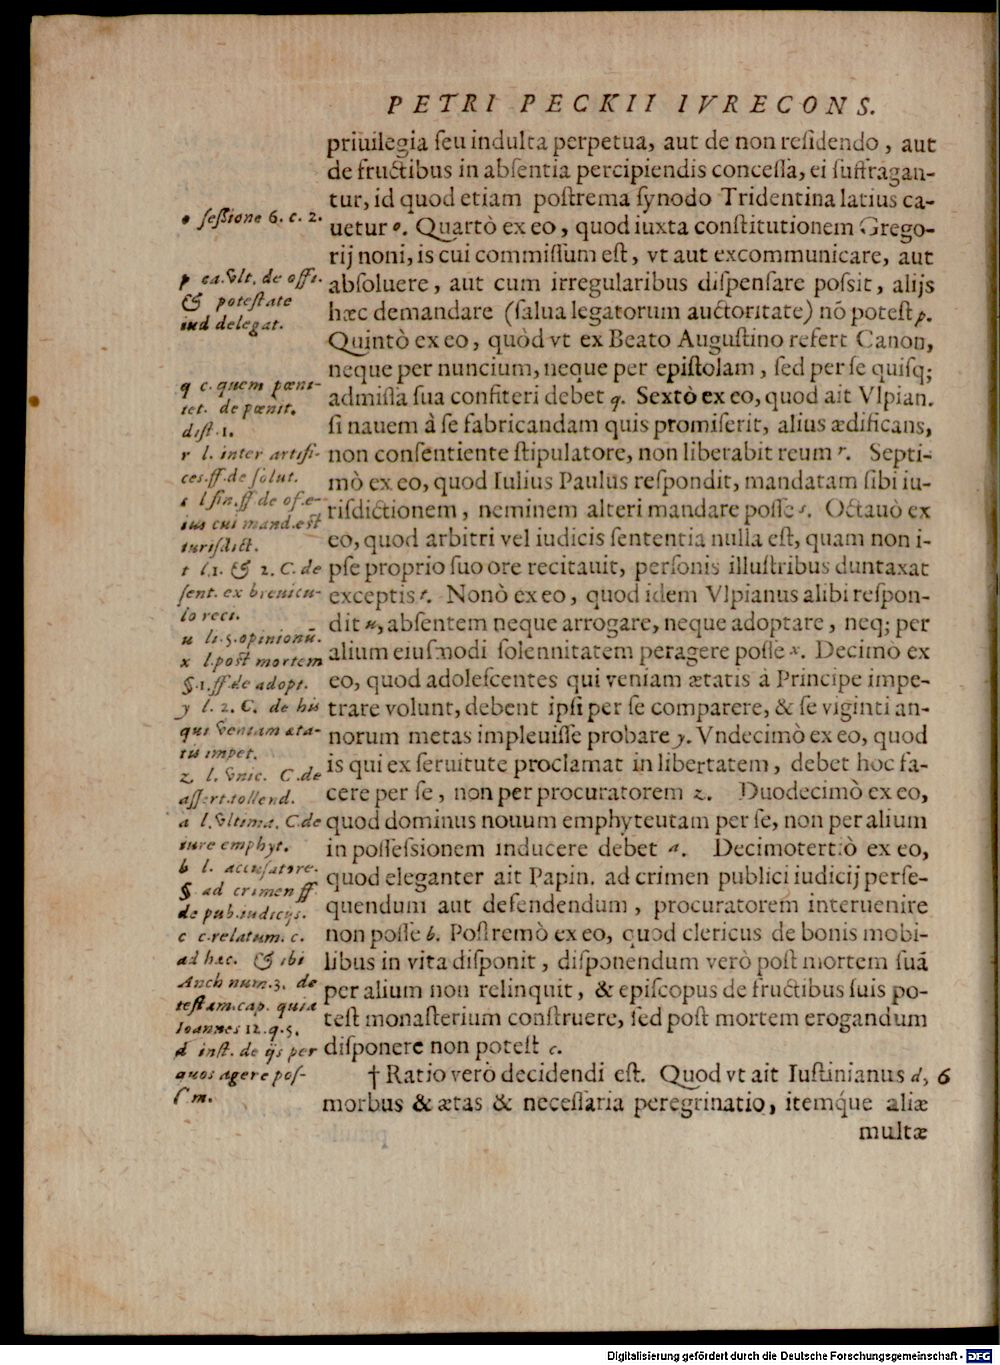 PETRI PECKII IVRECONS.
priuilegia ſeu indulta perpetua, aut de non reſidendo, aut
de fructibus in abſentia percipiendis conceſſa, ei ſuffragan-
tur, id quod etiam poſtrema ſynodo Tridentina latius ca-
uetur o. Quartò ex eo, quod iuxta conſtitutionem Grego-
rij noni, is cui commiſſum eſt, vt aut excommunicare, aut
abſoluere, aut cum irregularibus diſpenſare poſsit, alijs
hæc demandare (ſalua legatorum auctoritate) nõ poteſt p.
Quintò ex eo, quòd vt ex Beato Auguſtino refert Canon,
neque per nuncium, neque per epiſtolam, ſed per ſe quiſq;
admiſſa ſua confiteri debet q. Sextò ex eo, quod ait Vlpian.
ſi nauem à ſe fabricandam quis promiſerit, alius ædificans,
non conſentiente ſtipulatore, non liberabit reum r. Septi-
mò ex eo, quod Iulius Paulus reſpondit, mandatam ſibi iu-
riſdictionem, neminem alteri mandare poſſe s. Octauò ex
eo, quod arbitri vel iudicis ſententia nulla eſt, quam non i-
pſe proprio ſuo ore recitauit, perſonis illuſtribus duntaxat
exceptis t. Nonò ex eo, quod idem Vlpianus alibi reſpon-
dit u, abſentem neque arrogare, neque adoptare, neq; per
alium eiuſmodi ſolennitatem peragere poſſe x. Decimò ex
eo, quod adoleſcentes qui veniam ætatis à Principe impe-
trare volunt, debent ipſi per ſe comparere, & ſe viginti an-
norum metas impleuiſſe probare y. Vndecimò ex eo, quod
is qui ex ſeruitute proclamat in libertatem, debet hoc fa-
cere per ſe, non per procuratorem z. Duodecimò ex eo,
quod dominus nouum emphyteutam per ſe, non per alium
in poſſeſsionem inducere debet a. Decimotertiò ex eo,
quod eleganter ait Papin. ad crimen publici iudicij perſe-
quendum aut defendendum, procuratorem interuenire
non poſſe b. Poſtremò ex eo, quod clericus de bonis mobi-
libus in vita diſponit, diſponendum verò poſt mortem ſuã
per alium non relinquit, & epiſcopus de fructibus ſuis po-
teſt monaſterium conſtruere, ſed poſt mortem erogandum
diſponere non poteſt c.
† Ratio verò decidendi eſt. Quod vt ait Iuſtinianus d, 6
morbus & ætas & neceſſaria peregrinatio, itemq́ue aliæ
multæ
o ſeſsione 6. c. 2.
p ca. vlt. de offi.
& poteſtate
iud delegat.
q c. quem pœni-
tet. de pœnit.
diſt. 1.
r l. inter artifi-
ces. ff. de ſolut.
s l. fin. ff. de of. e-
ius cui mand. eſt
iuriſdict.
t l. 1. & 2. C. de
ſent. ex breuicu-
lo reci.
u li. 5. opinionũ.
x l. poſt mortem
§. 1. ff. de adopt.
y l. 2. C. de his
qui veniam æta-
tis impet.
z l. vnic. C. de
aſſert. tollend.
a l. vltima. C. de
iure emphyt.
b l. accuſatore.
§ ad crimen ff.
de pub. iudicijs.
c c. relatum. c.
ad hæc. & ibi
Anch num. 3. de
teſtam. cap. quia
Ioannes 12. q. 5.
d inſt. de ijs per
quos agere poſ-
ſ.m.
Digitalisierung gefördert durch die Deutsche Forschungsgemeinschaft - DFG